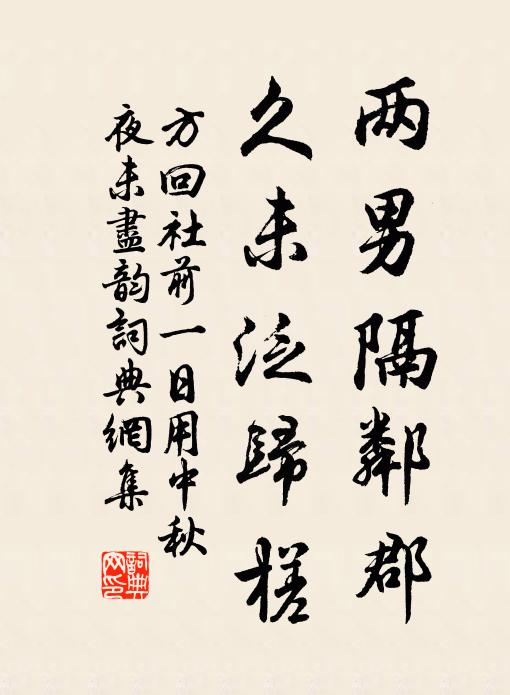 两男隔鄰郡
久未泛歸槎
方回社前一日用中秋
夜未盡韵詞典網集
詞典
网印